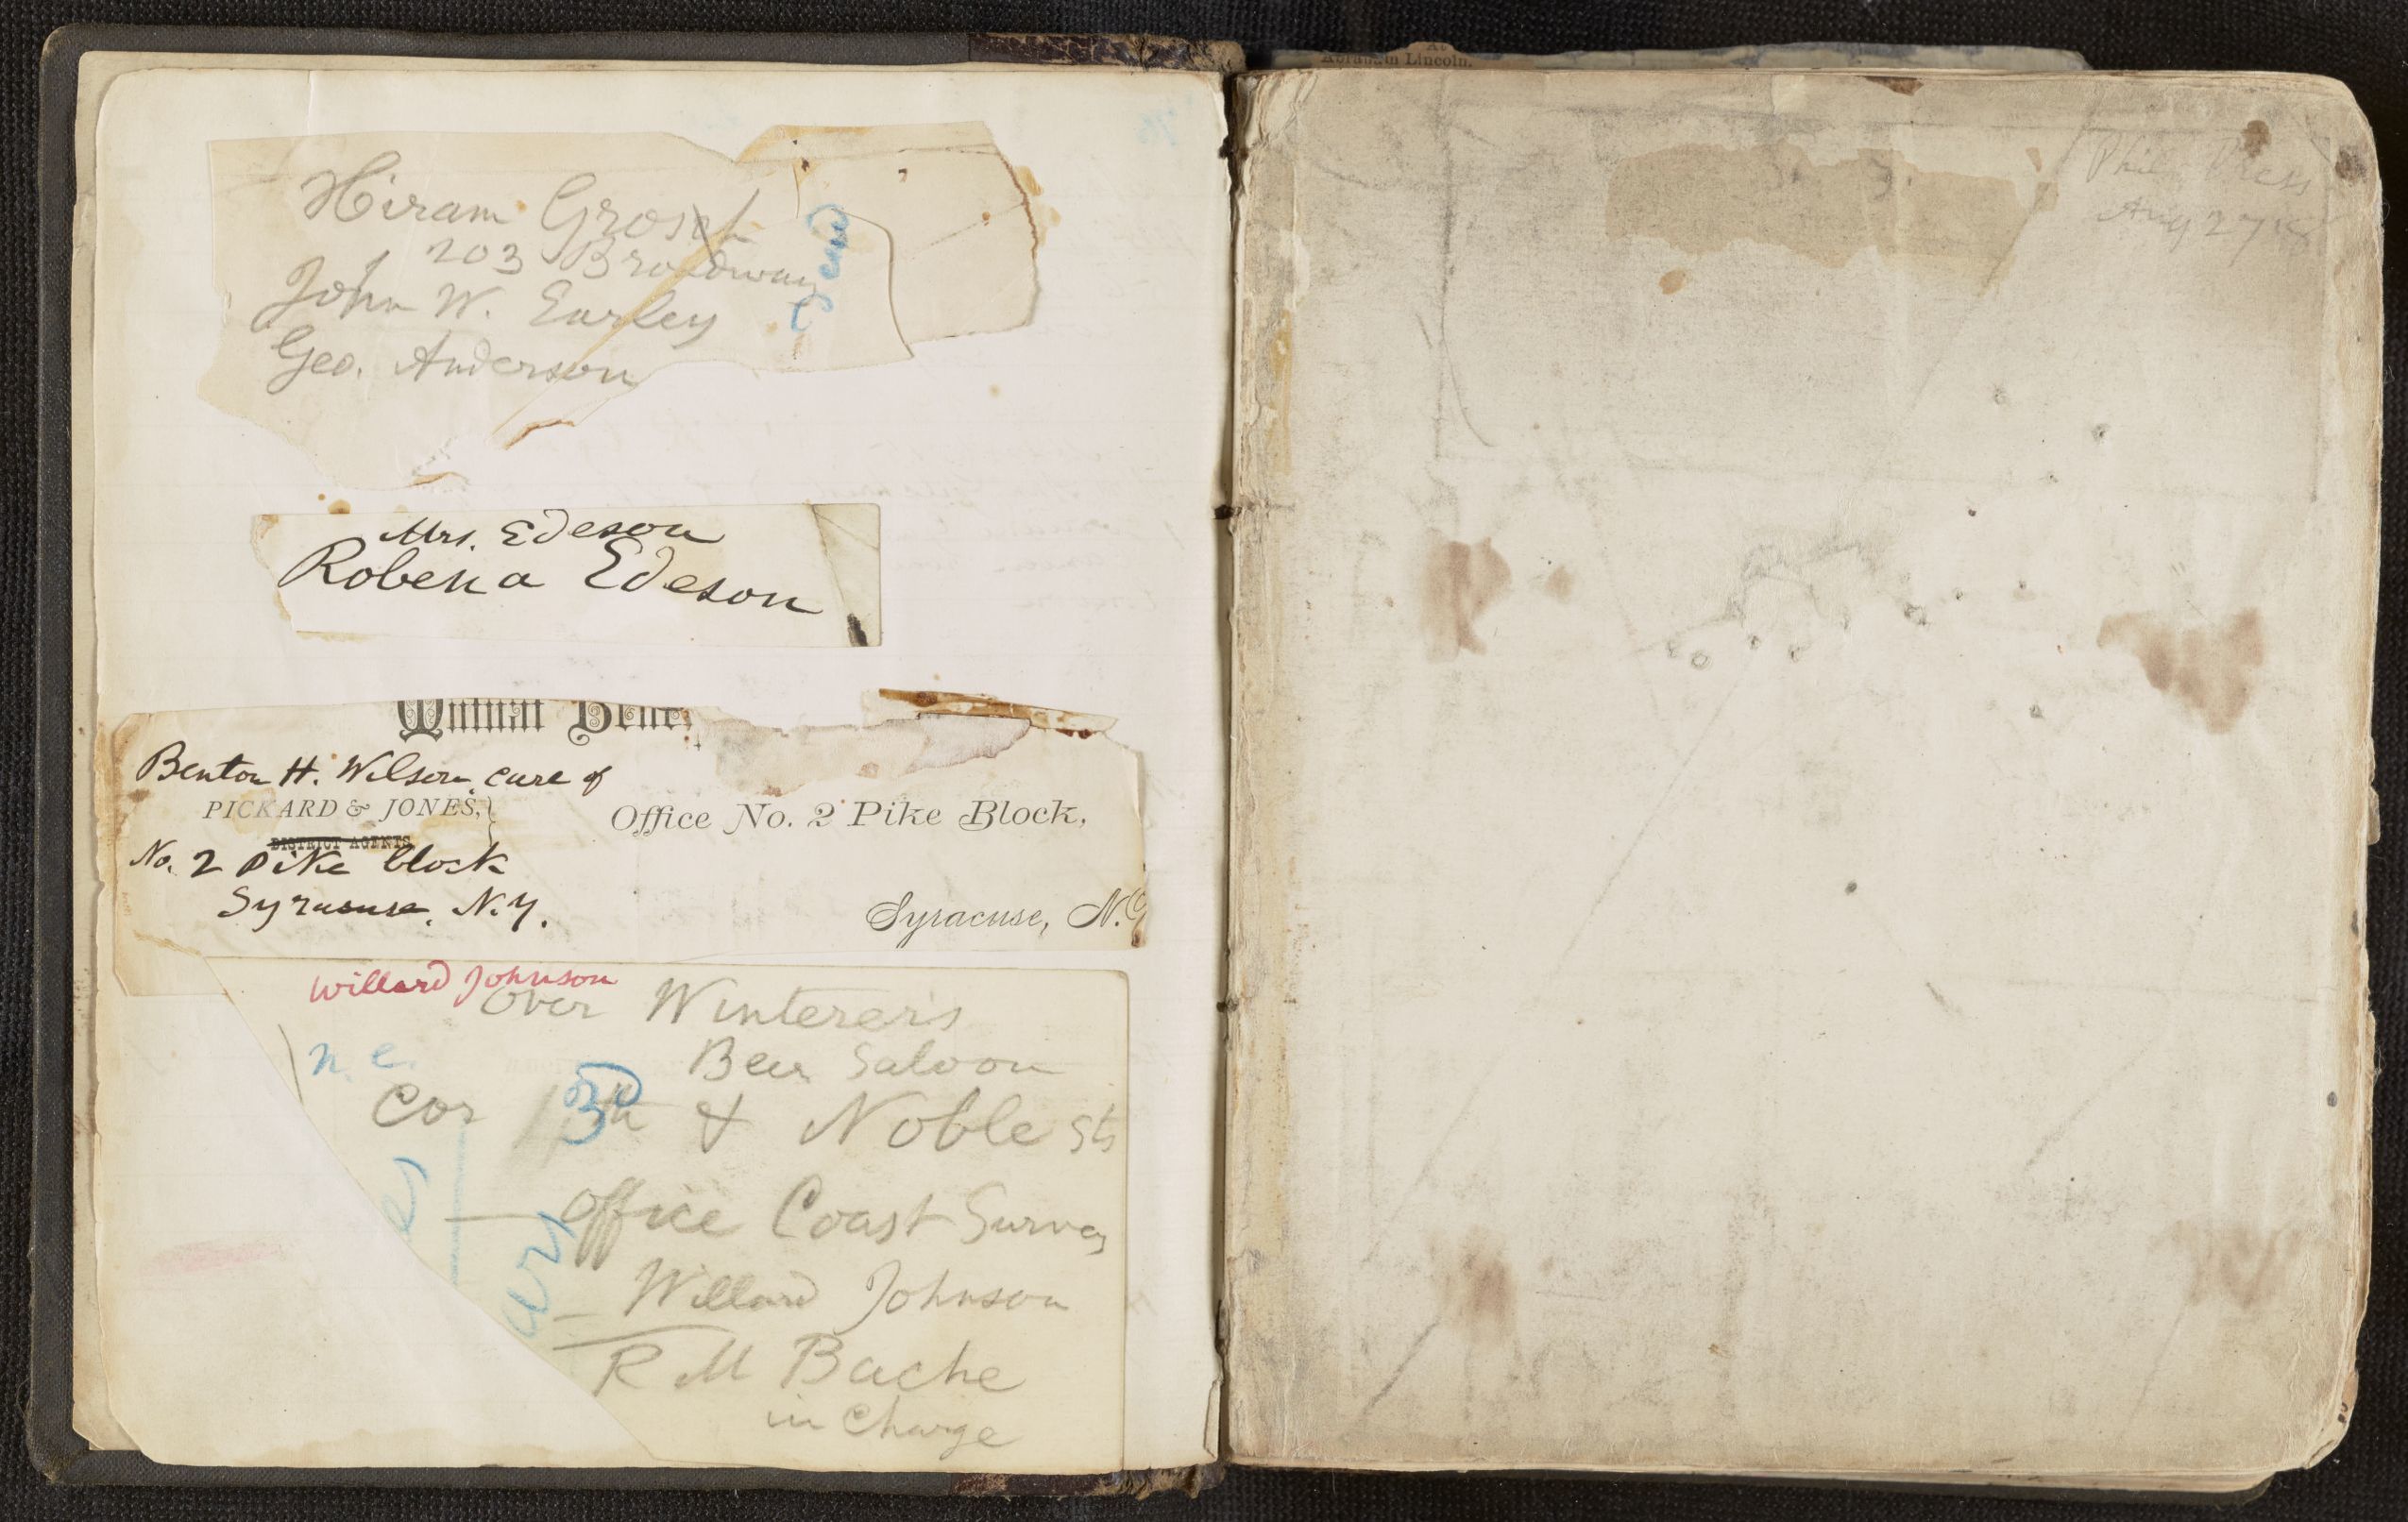 Hiram
203 Broadway
John W. Earley
Geo. Anderson
Mrs. Edeson
Robena Edeson
Benton H. Wilson, care of
PICKARD & JONES,
DISTRICT AGENTS
No. 2 Pike block
Syracuse. N.Y.
Office No. 2 Pike Block,
Syracuse, N.Y
Willard Johnson
over Winterers
Beer Saloon
n. e.
Cor 3d & Noble sts
Office Coast Survey
Willard Johnson
R M Bache
in charge
Abraham Lincoln.
Phil Press
Aug 27